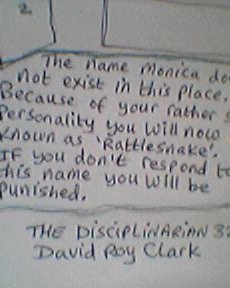 2
The name Monica do
not exist in this place.
Because of your rather s
Personality you will now
known as 'Rattlesnake'.
If you don't respond to
this name you will be
punished.
THE DISCIPLINARIAN 32
David Roy Clark